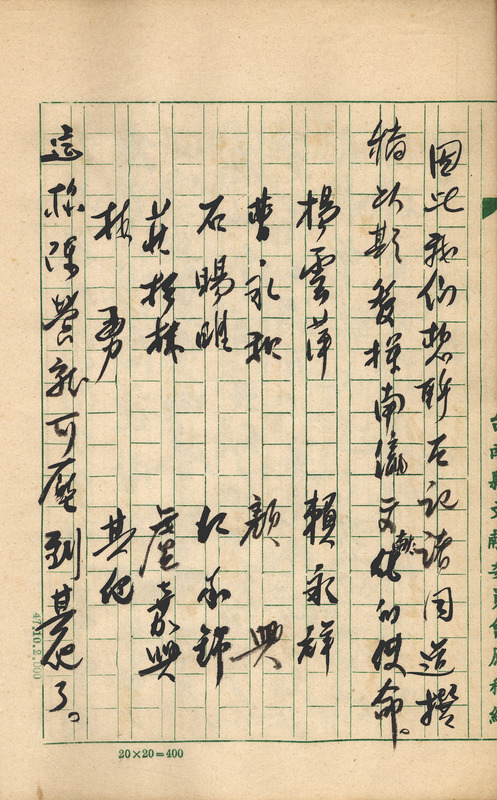 因此我們想聘左記諸同道撰
稿以期發揮南瀛文獻的使命。
楊雲萍　賴永祥
曹永和　顏　興
石暘睢　江家錦
莊松林　盧嘉興
林　勇　其他
這樣陣營就可壓到其他了。
20×20=400
47.10.2.000